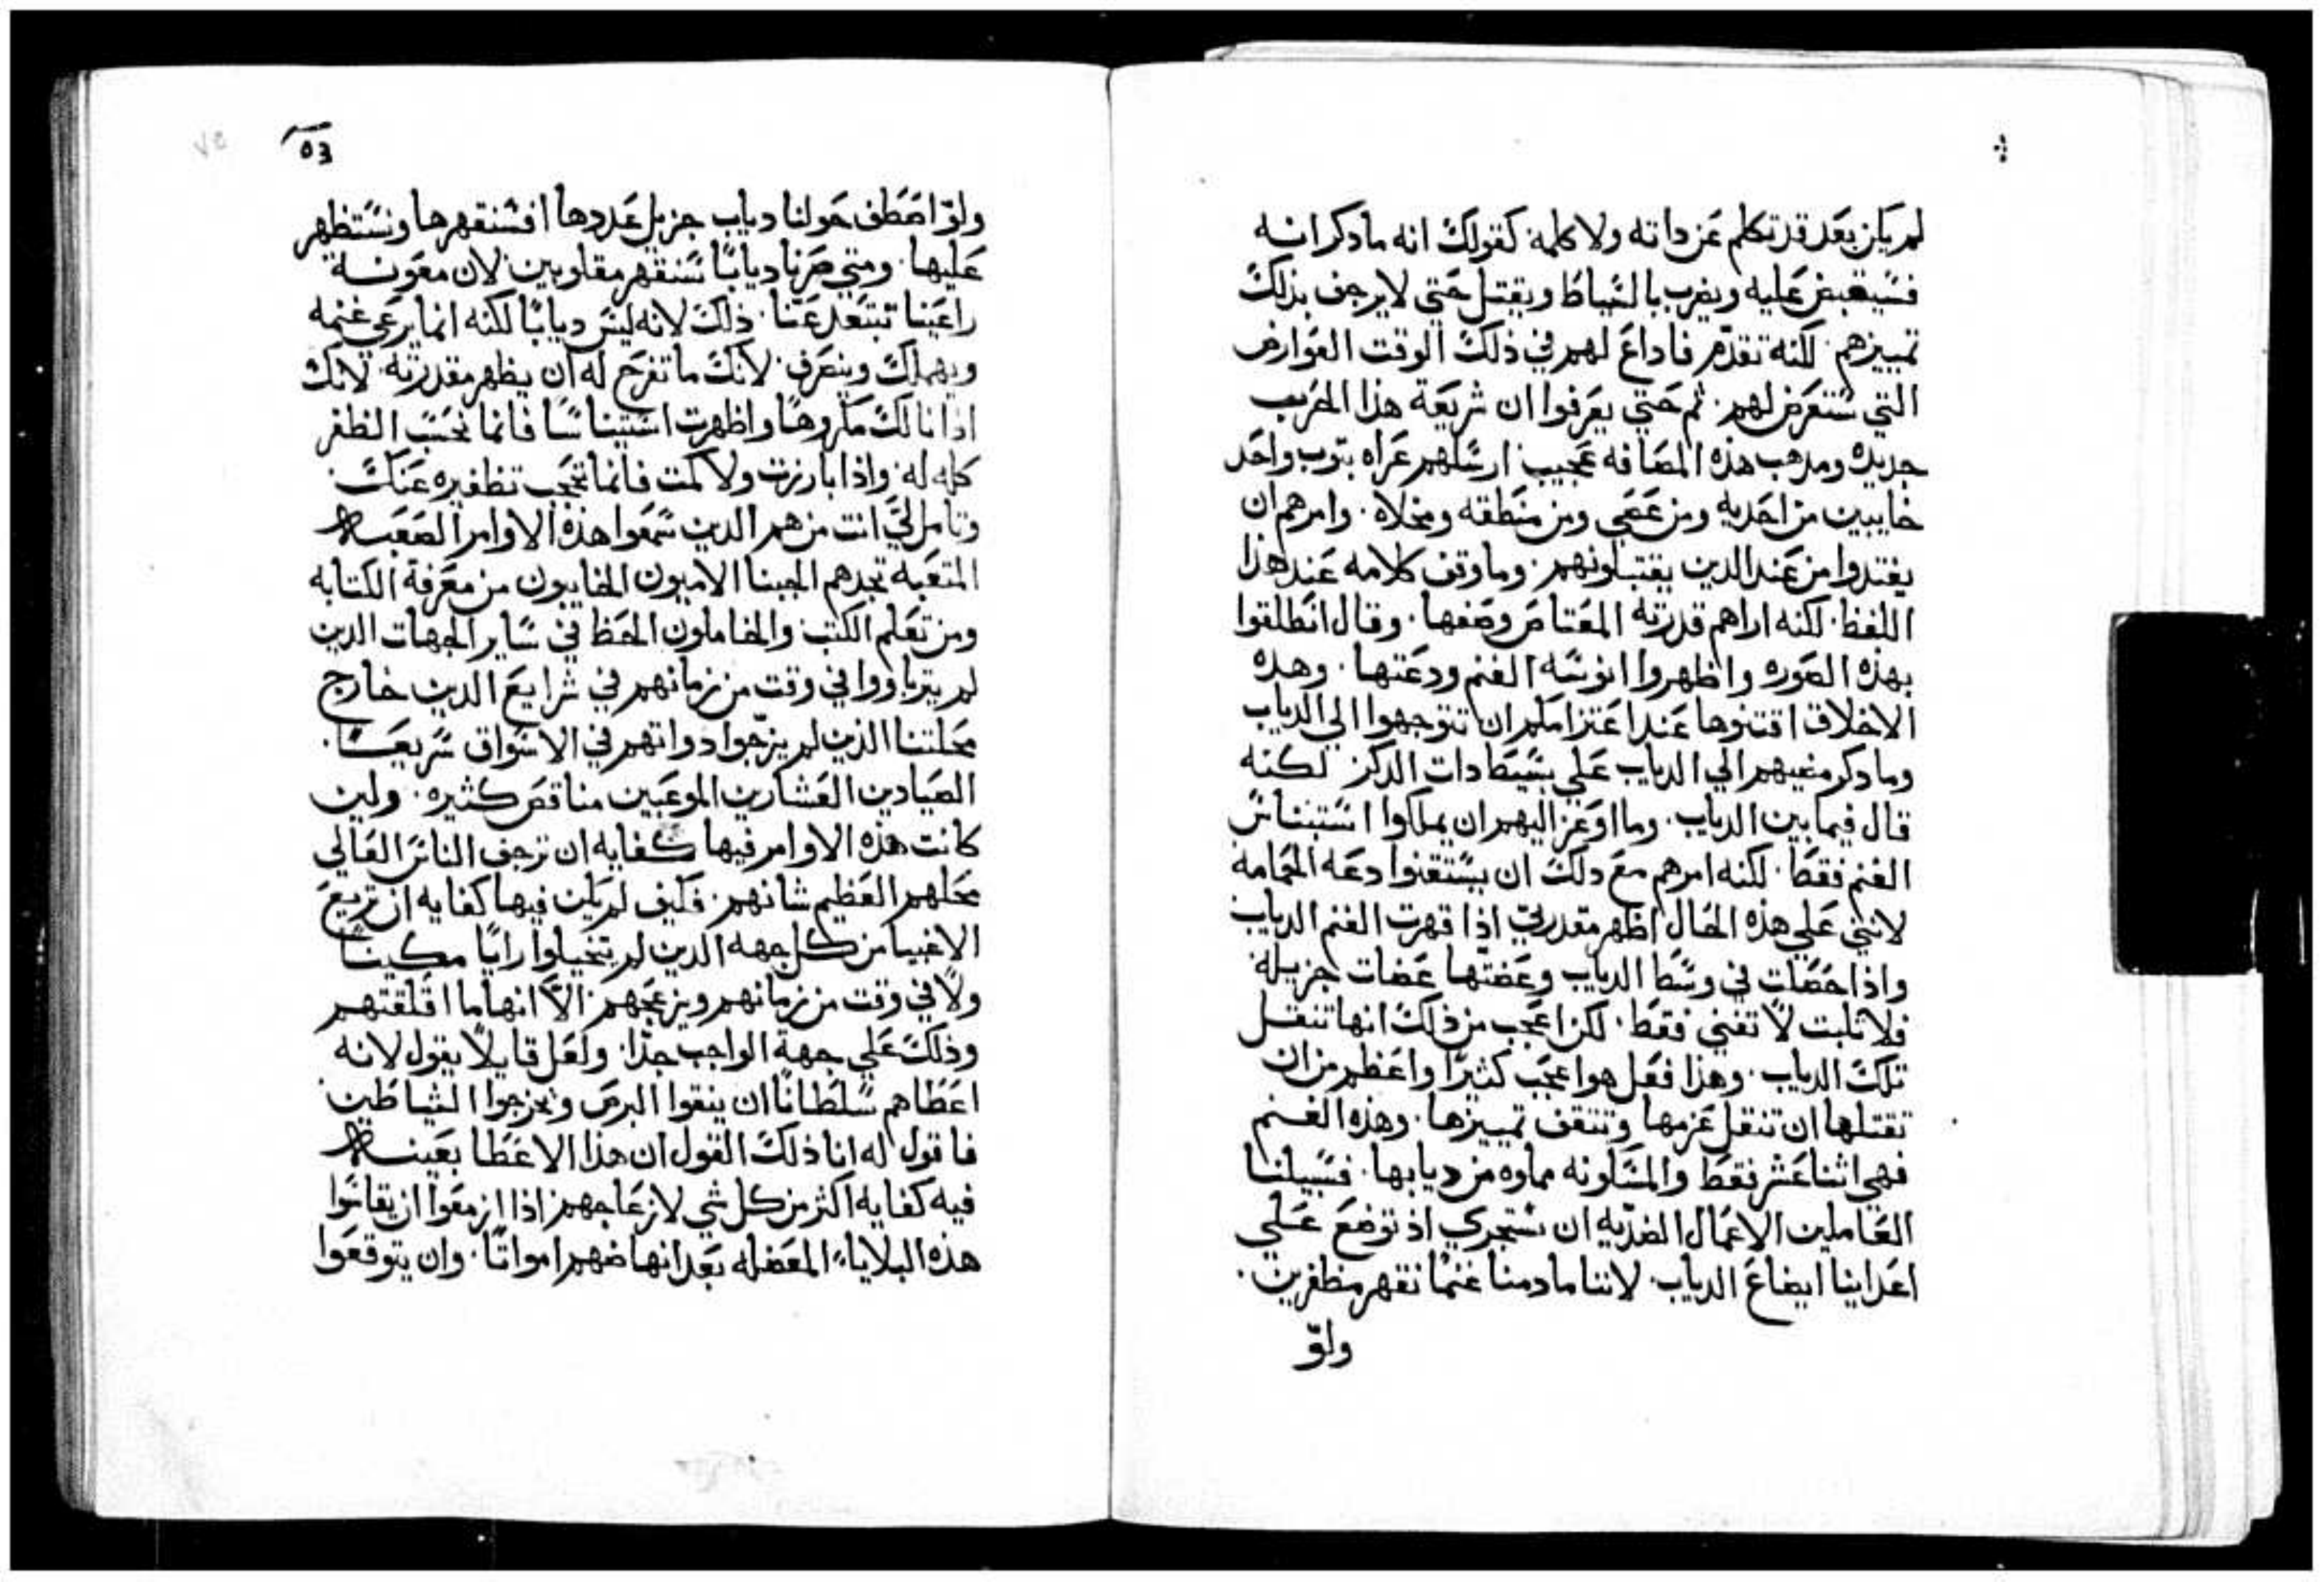 لم يكن بعد قد تكلم عن داته ولا كلمه كقولك انه ما دكر انه
فسيقبض عليه ويضرب بالسياط ويقتل حتي لا يرجف بذلك
تمييزهم. لكنه تقدم فاداع لهم في ذلك الوقت العوارض
التي ستعرض لهم. ثم حتي يعرفوا ان شريعة هذا الحرب
جديده ومدهب هذه المصافه عجيب ارسلهم عراه بتوب واحد
خايبين من احديه ومن عصي ومن منطقه ومخلاه. وامرهم ان
يغتدوا من عند الدين يقتبلونهم. وما وقف كلامه عند هذا
اللفظ. لكنه اراهم قدرته المعتاص وصفها. وقال انطلقوا
بهذه الصوره واظهروا انوسة الغنم ودعتها. وهده
الاخلاق اقتنوها عند اعتزامكم ان تتوجهوا الي الدياب
وما دكر مضيهم الي الدياب علي بسيط دات الدكر لكنه
قال فيما بين الدياب. وما اوعز اليهم ان يملكوا استيناس
الغنم فقط. لكنه امرهم مع دلك ان يستقنوا دعه الحمامه
لانني علي هذه الحال اظهر مقدرتي اذا قهرت الغنم الدياب
واذا حصلت في وسط الدياب وعضتها عضات جزيله
فلا تلبت لا تفني فقط. لكن اعجب من ذلك انها تنقل
تلك الدياب. وهذا فعل هو اعجب كثيرًا واعظم من ان
تقتلها ان تنقل عزمها وتتقف تمييزها. وهذه الغنم
فهي اثنا عشر فقط والمسكونه مملوه من ديابها. فسبيلنا
العاملين الاعمال الضديه ان نستحري اذ نوضع علي
اعداينا ايضاع الدياب. لاننا ما دمنا غنمًا نقهر مظفرين.
ولو
03
ولو اصطف حولنا دياب جزيل عددها افسنقهرها ونستظهر
عليها. ومتي صرنا ديابًا سنقهر مغلوبين لان معونة
راعينا تبتعد عنا. ذلك لانه ليس ديابًا لكنه انما يرعي غنمه
ويهملك وينصرف. لانك ما تفرج له ان يظهر مقدرته. لانك
اذا نالك مكروهًا واظهرت استيناسًا فانما نحسب الظفر
كله له. واذا بارزت ولاكمت فانما تحجب تظفيره عنك.
وتامل لي انت من هم الدين سمعوا هذه الاوامر الصعبه
المتعبه تجدهم الجبنا الاميون الخايبون من معرفة الكتابه
ومن تعلم الكتب والخاملون الحظ في ساير الجهات الدين
لم يتربوا في وقت من زمانهم في شرايع الدين خارج
محلتنا الذين لم يزجوا دواتهم في الاسواق سريعًا.
الصيادين العشارين الموعبين مناقص كثيره. ولين
كانت هذه الاوامر فيها كفايه ان ترجف الناس العالي
محلهم العظيم شانهم. فكيف لم يكن فيها كفايه ان تريع
الاغبيا من كل جهه الدين لم يتخيلوا رايًا مكينًا
ولا في وقت من زمانهم ويزعجهم. الا انها ما اقلقتهم
وذلك علي جهة الواجب جدًا. ولعل قايلًا يقول لانه
اعطاهم سلطانًا ان ينقوا البرص ويخرجوا الشياطين.
فاقول له انا ذلك القول ان هذا الاعطا بعينه
فيه كفايه اكثر من كل شي لازعاجهم اذا ازمعوا ان يقاسوا
هذه البلايا المعضله بعد انهاضهم امواتًا. وان يتوقعوا